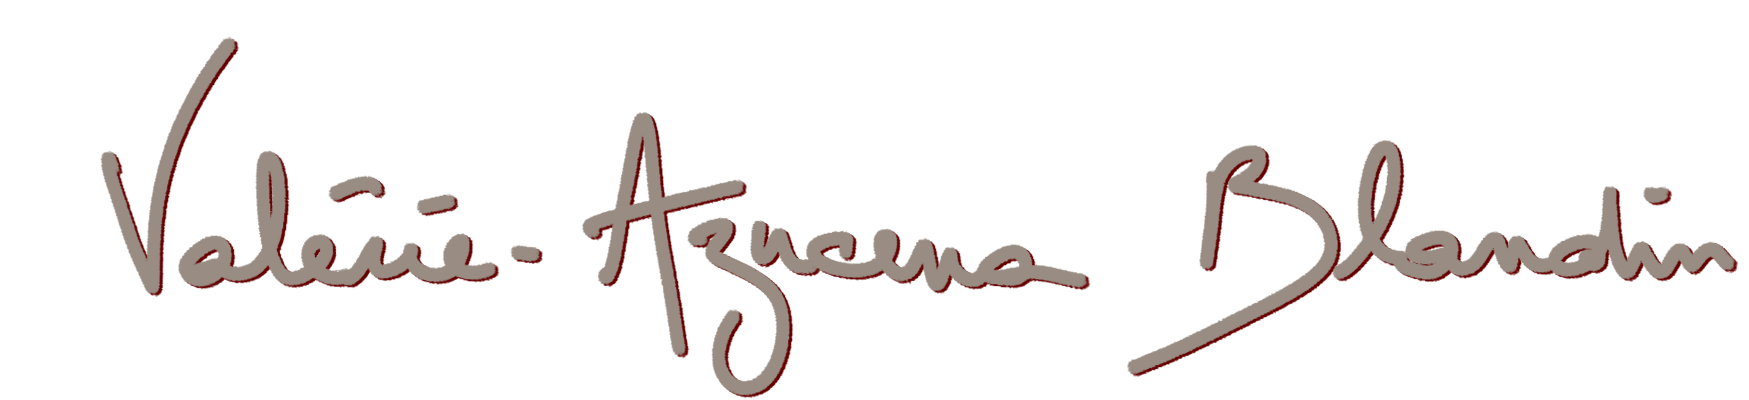 Valérie-Azucena Blandin